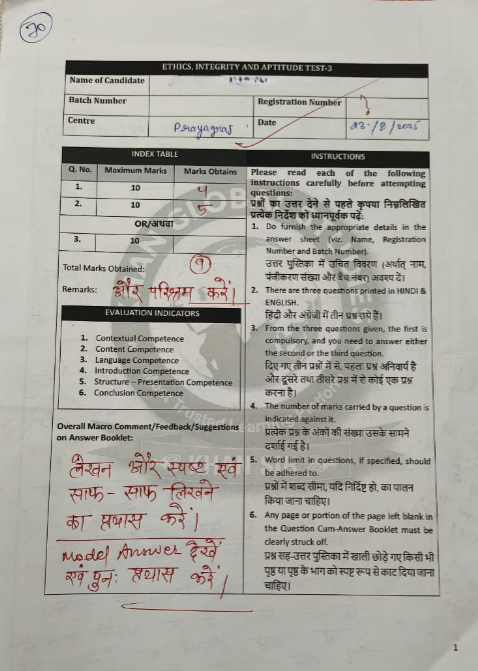 20
ETHICS, INTEGRITY AND APTITUDE TEST-3
Name of Candidate
Batch Number
Registration Number ?
Centre Prayagraj
Date 23-/8/2025
INDEX TABLE
Q. No. Maximum Marks Marks Obtains
1. 10 4
2. 10 5
OR/अथवा
3. 10
Total Marks Obtained: 9
Remarks: और परिश्रम करें।
EVALUATION INDICATORS
1. Contextual Competence
2. Content Competence
3. Language Competence
4. Introduction Competence
5. Structure – Presentation Competence
6. Conclusion Competence
Overall Macro Comment/Feedback/Suggestions
on Answer Booklet:
लेखन और स्पष्ट एवं
साफ-साफ लिखने
का प्रयास करें।
Model Answer देखें
एवं पुनः प्रयास करें।
INSTRUCTIONS
Please read each of the following
instructions carefully before attempting
questions:
प्रश्नों का उत्तर देने से पहले कृपया निम्नलिखित
प्रत्येक निर्देश को ध्यानपूर्वक पढ़ें:
1. Do furnish the appropriate details in the
answer sheet (viz. Name, Registration
Number and Batch Number).
उत्तर पुस्तिका में उचित विवरण (अर्थात् नाम,
पंजीकरण संख्या और बैच नंबर) अवश्य दें।
2. There are three questions printed in HINDI &
ENGLISH.
हिंदी और अंग्रेजी में तीन प्रश्न छपे हैं।
3. From the three questions given, the first is
compulsory, and you need to answer either
the second or the third question.
दिए गए तीन प्रश्नों में से, पहला प्रश्न अनिवार्य है
और दूसरे तथा तीसरे प्रश्न में से कोई एक प्रश्न
करना है।
4. The number of marks carried by a question is
indicated against it.
प्रत्येक प्रश्न के अंकों की संख्या उसके सामने
दर्शाई गई है।
5. Word limit in questions, if specified, should
be adhered to.
प्रश्नों में शब्द सीमा, यदि निर्दिष्ट हो, का पालन
किया जाना चाहिए।
6. Any page or portion of the page left blank in
the Question Cum-Answer Booklet must be
clearly struck off.
प्रश्न सह-उत्तर पुस्तिका में खाली छोड़े गए किसी भी
पृष्ठ या पृष्ठ के भाग को स्पष्ट रूप से काट दिया जाना
चाहिए।
1